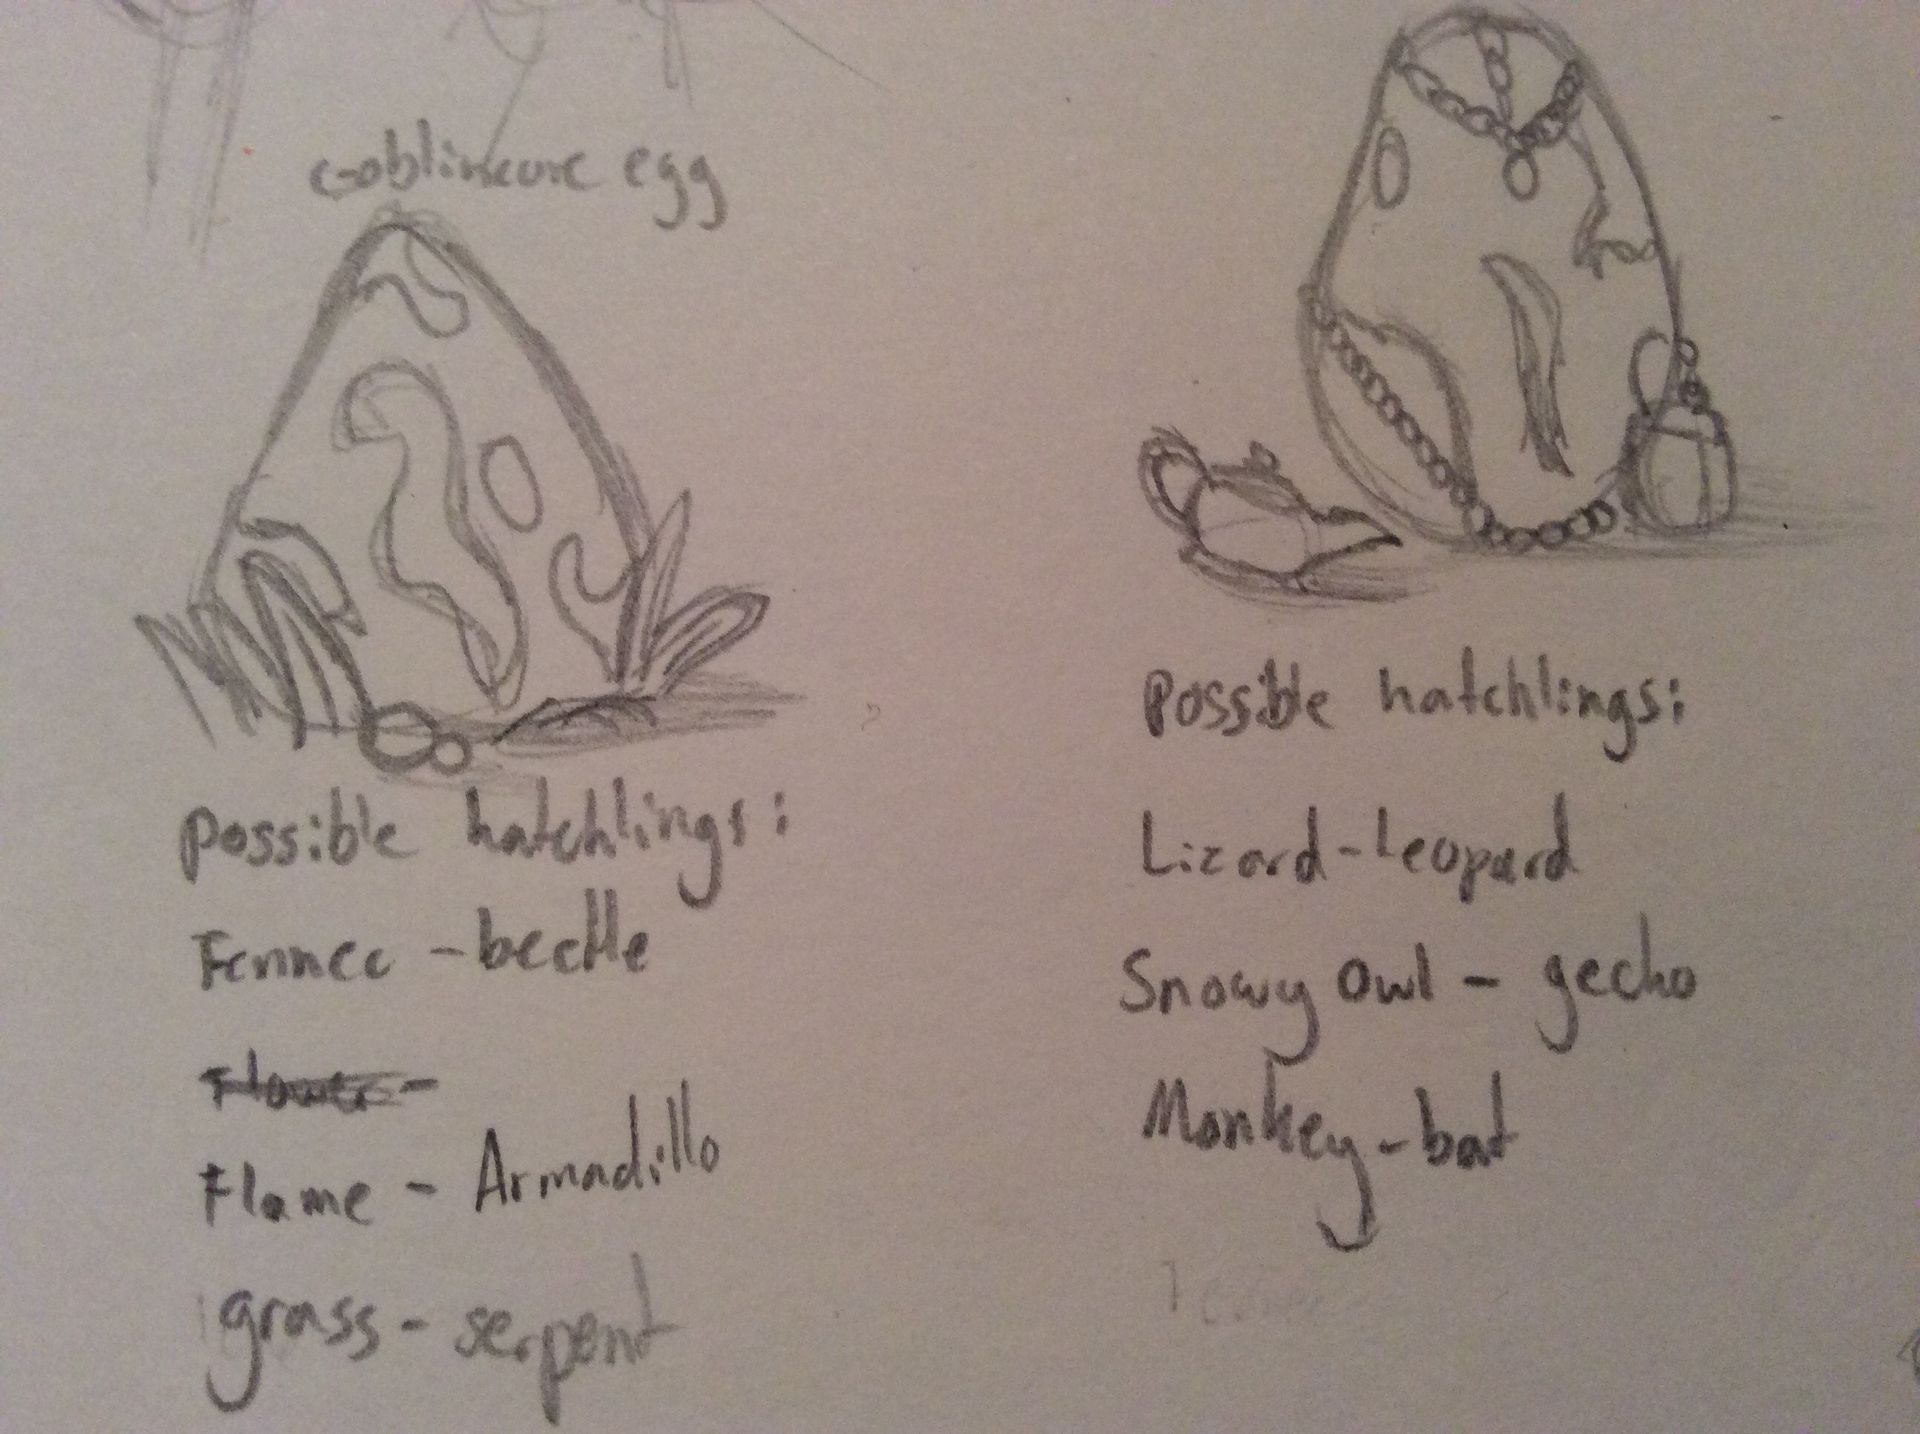 Goblincore egg
Possible hatchlings:
Fennec - beetle
Flower -
Flame - Armadillo
grass - serpent
Possible hatchlings:
Lizard - Leopard
Snowy Owl - gecko
Monkey - bat